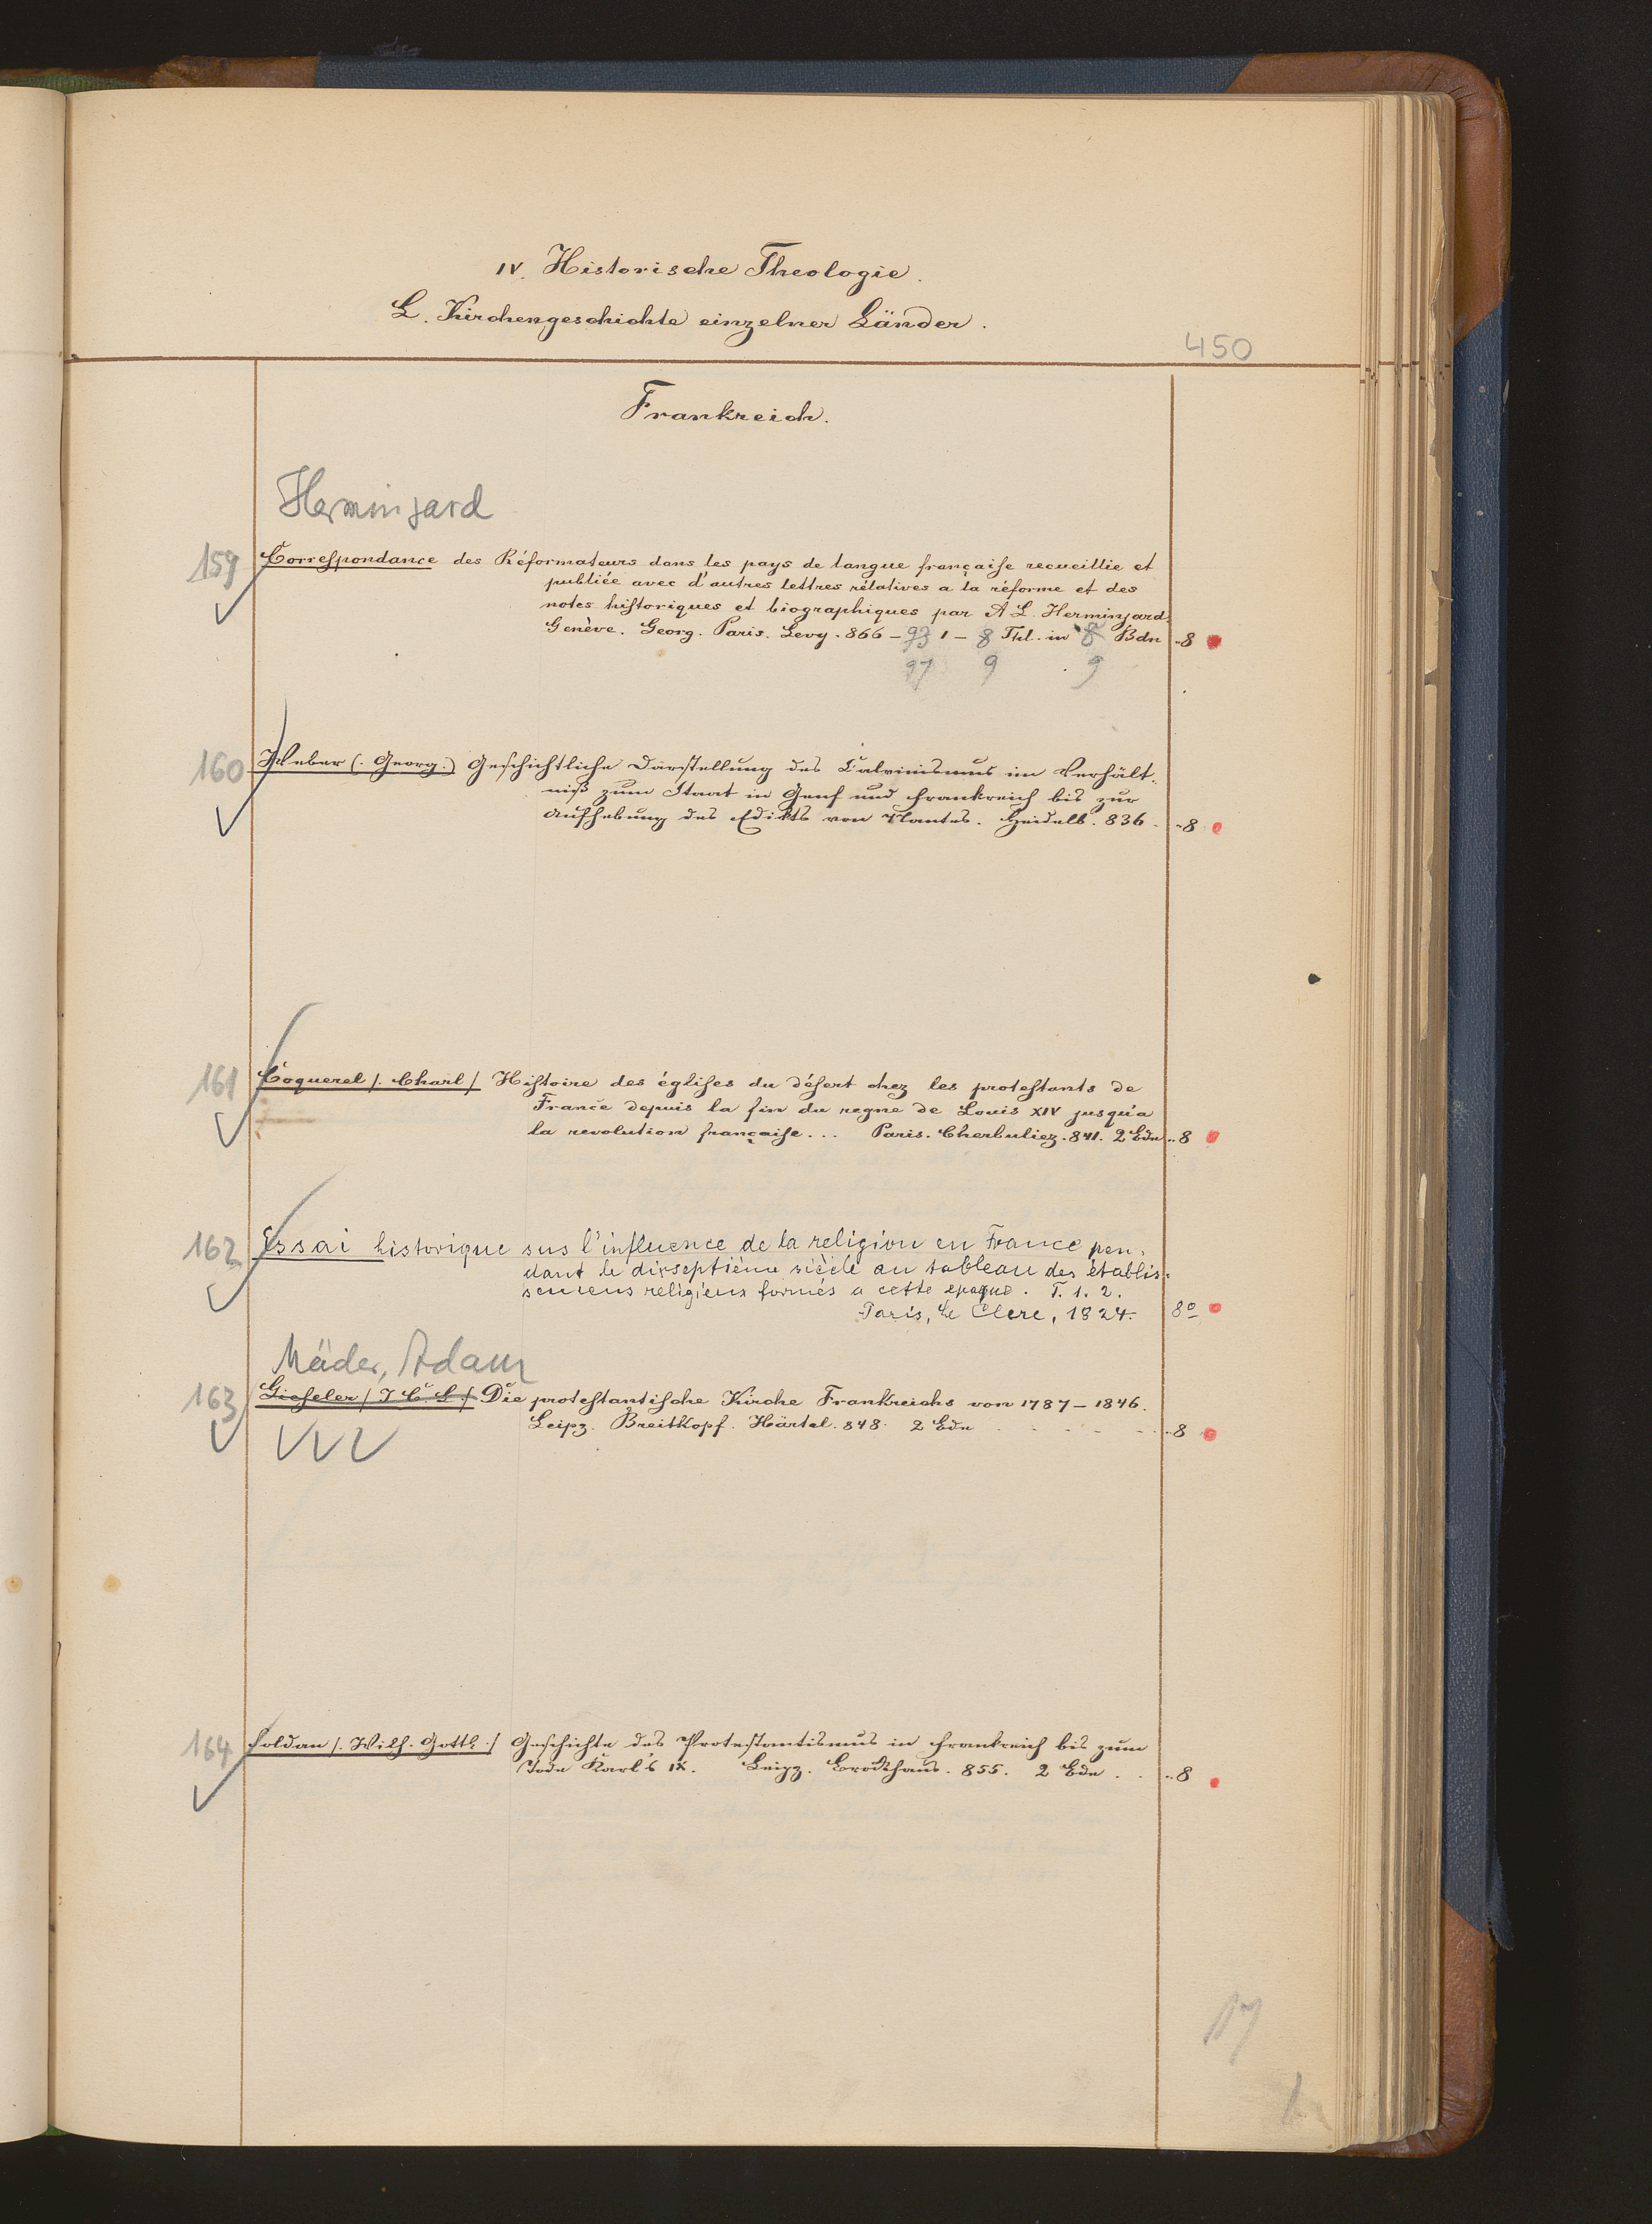 IV. Historische Theologie.
L. Kirchengeschichte einzelner Länder.
450
Frankreich.
Herminjard
159 Correspondance des Réformateurs dans les pays de langue française recueillie et
publiée avec d'autres lettres rélatives a la réforme et des
notes historiques et biographiques par A L. Herminjard.
Genève. Georg. Paris. Levy. 866 – 93 1 – 8 Thl. in 8 Bdn 8
97 9 9
160 Weber (. Georg.) Geschichtliche Darstellung des Calvinismus im Verhält-
niß zum Staat in Genf und Frankreich bis zur
Aufhebung des Edikts von Nantes. Heidelb. 836. 8
161 Coquerel /. Charl / Histoire des églises du désert chez les protestants de
France depuis la fin du regne de Louis XIV jusqu'a
la revolution française... Paris. Cherbuliez. 841. 2 Bde 8
162 Essai historique sus l'influence de la religion en France pen-
dant le dixseptième siècle au tableau des établis-
semens religieux formés a cette epoque. T. 1. 2.
Paris, Le Clere, 1824. 8º
Mäder, Adam
163 Gieseler / J C. L / Die protestantische Kirche Frankreichs von 1787 – 1846.
Leipz. Breitkopf. Härtel. 848. 2 Bde 8
164 Soldan /. Wilh. Gottl. / Geschichte des Protestantismus in Frankreich bis zum
Tode Karl's IX. Leipz. Brockhaus. 855. 2 Bde . . 8
17